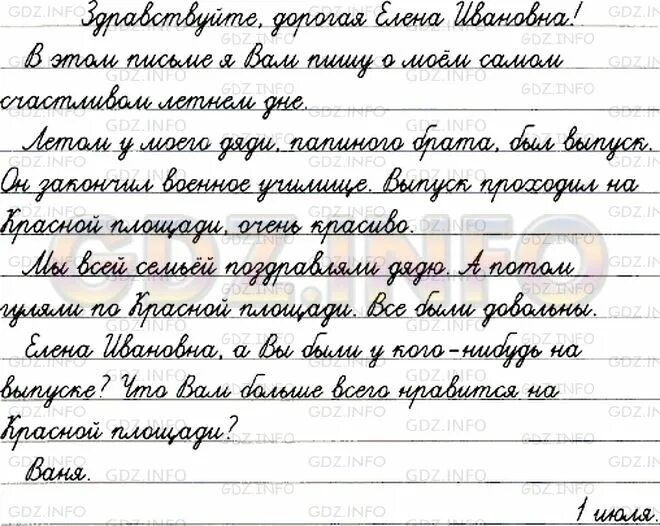 Здравствуйте, дорогая Елена Ивановна!
В этом письме я Вам пишу о моём самом
счастливом летнем дне.
Летом у моего дяди, папиного брата, был выпуск.
Он закончил военное училище. Выпуск проходил на
Красной площади, очень красиво.
Мы всей семьёй поздравляли дядю. А потом
гуляли по Красной площади. Все были довольны.
Елена Ивановна, а Вы были у кого-нибудь на
выпуске? Что Вам больше всего нравится на
Красной площади?
Ваня.
1 июля.
GDZ.INFO